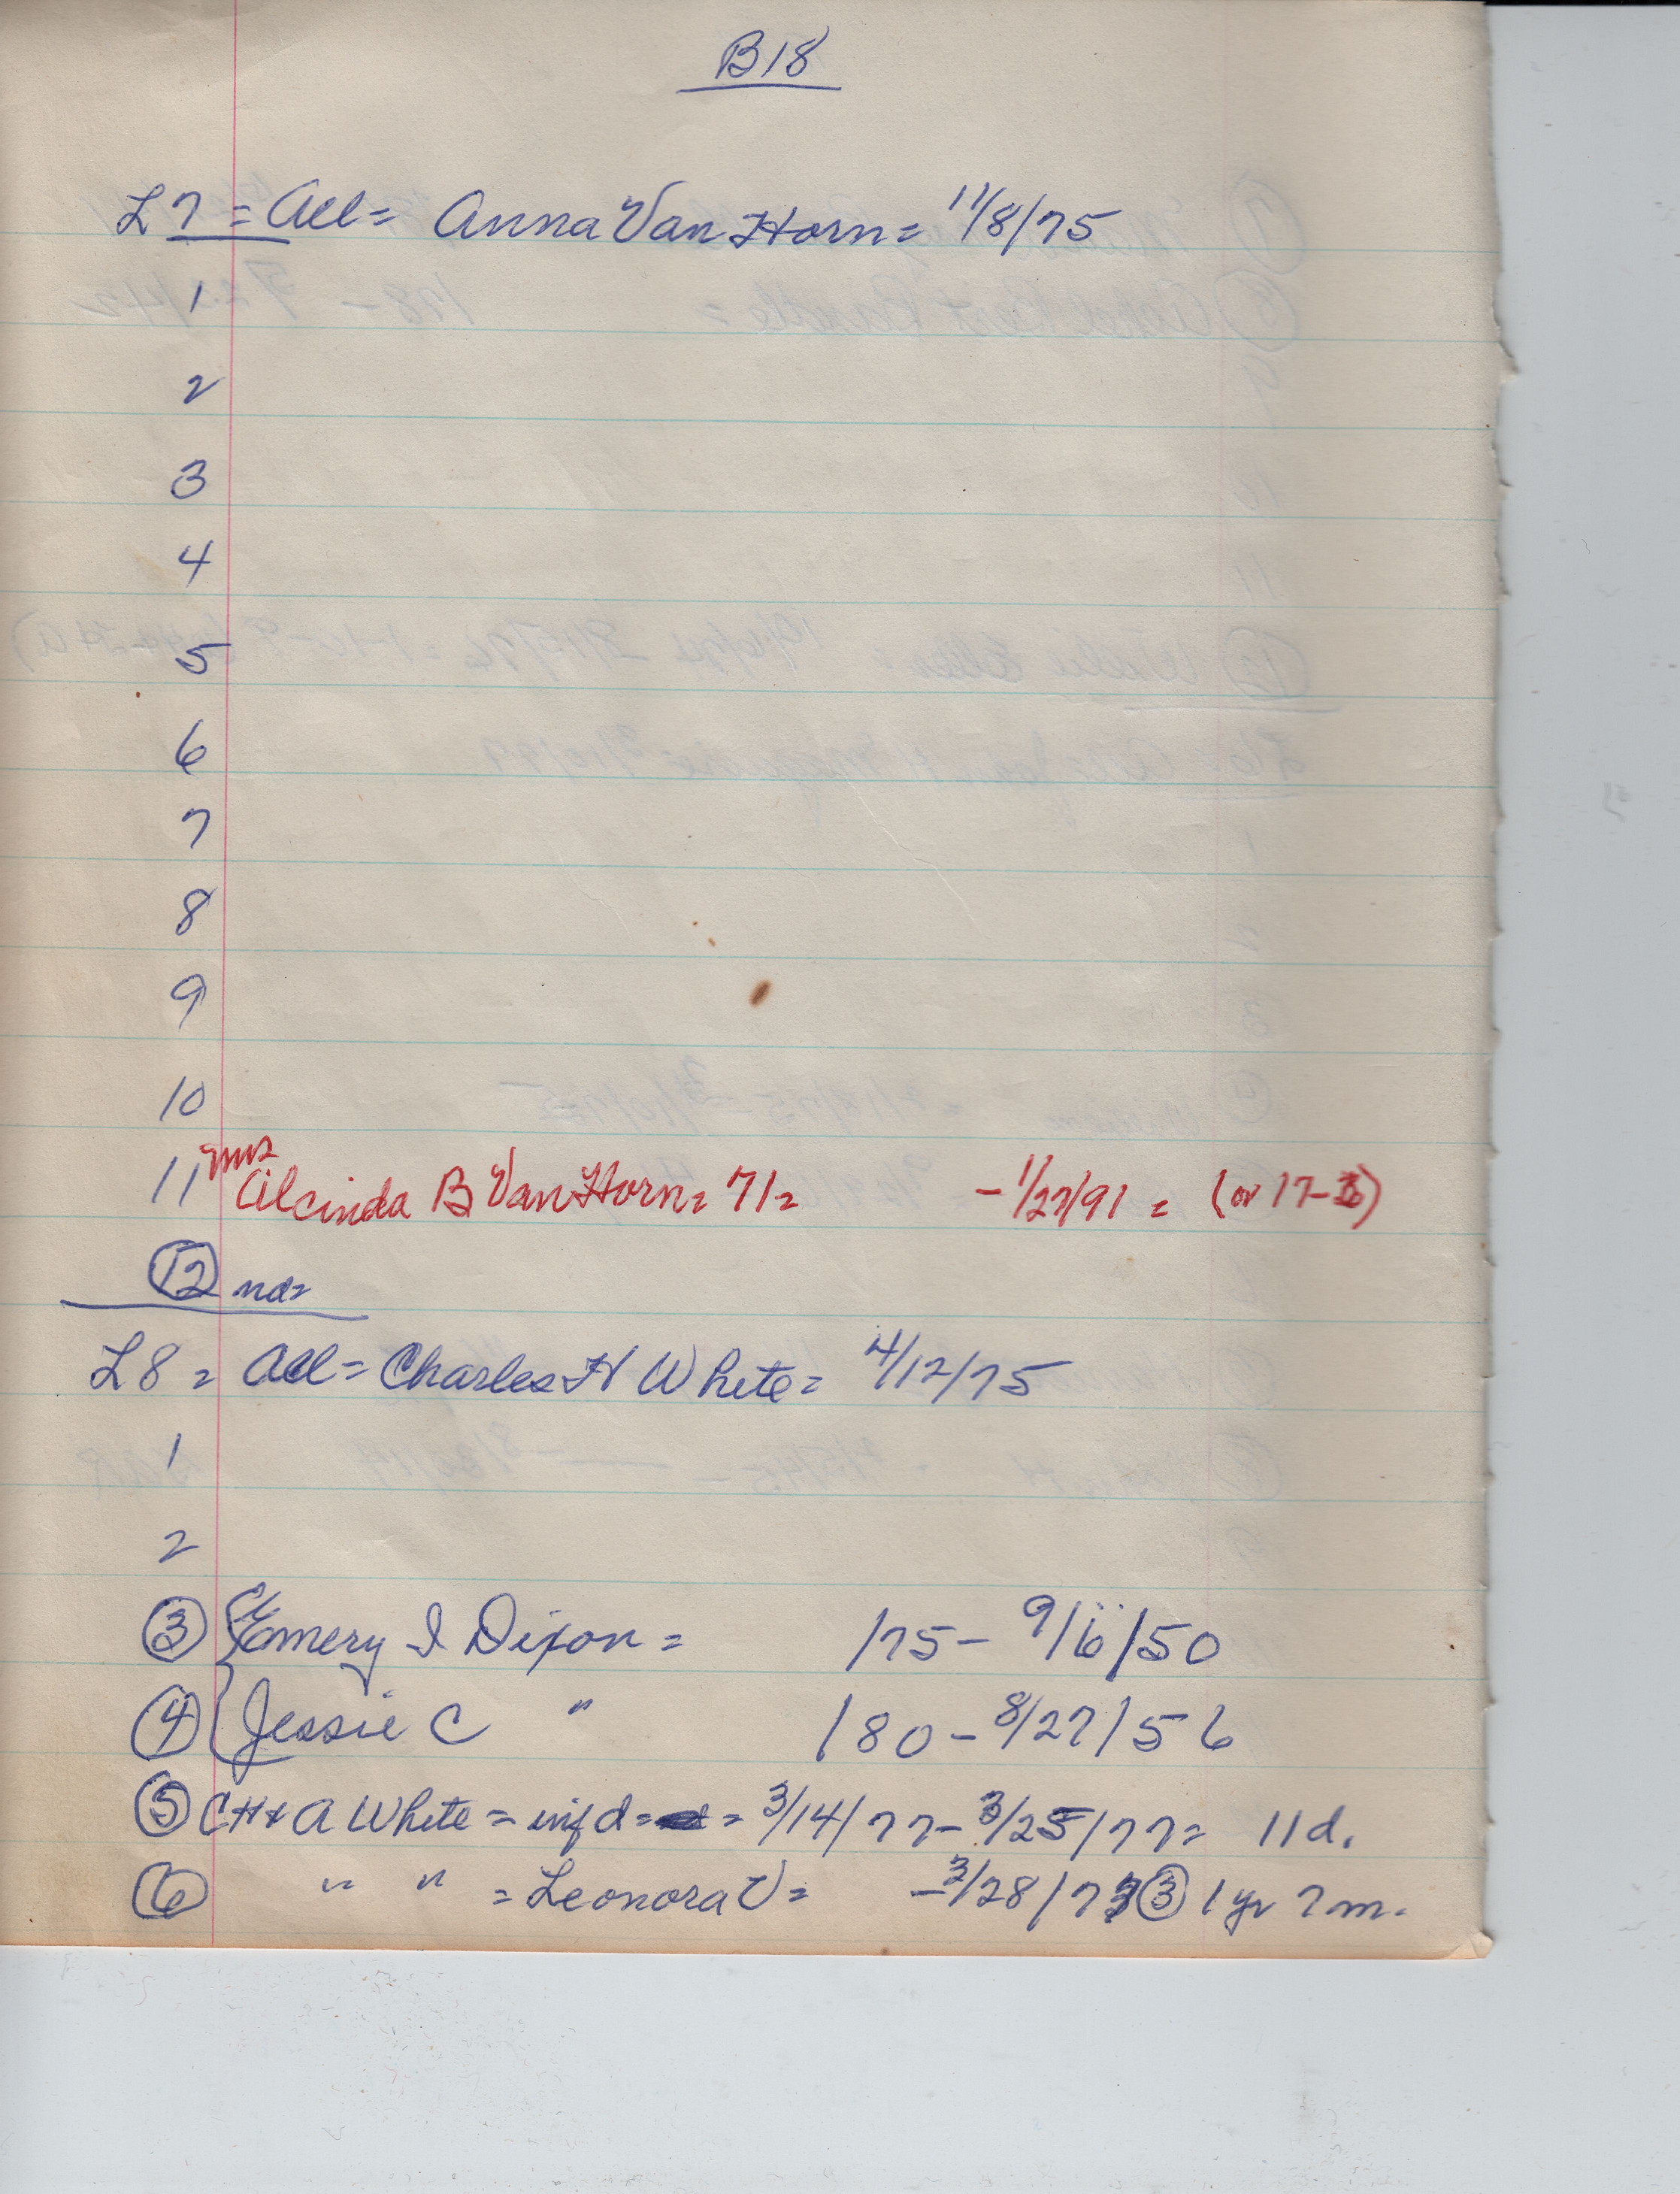 B18
L7 = All = Anna Van Horn = 11/8/75
1
2
3
4
5
6
7
8
9
10
11 mrs Alcinda B Van Horn = 71 = - 1/27/91 = (or 17-
12 nd=
L8 = All = Charles H White = 4/12/75
1
2
3 Emery I Dixon = /75 - 9/6/50
4 Jessie C " /80 - 8/27/56
5 CH & A White = inf d = = 3/14/77 - 3/25/77 = 11 d.
6 " " = Leonora V = - 3/28/73 3 1 yr 7 m.